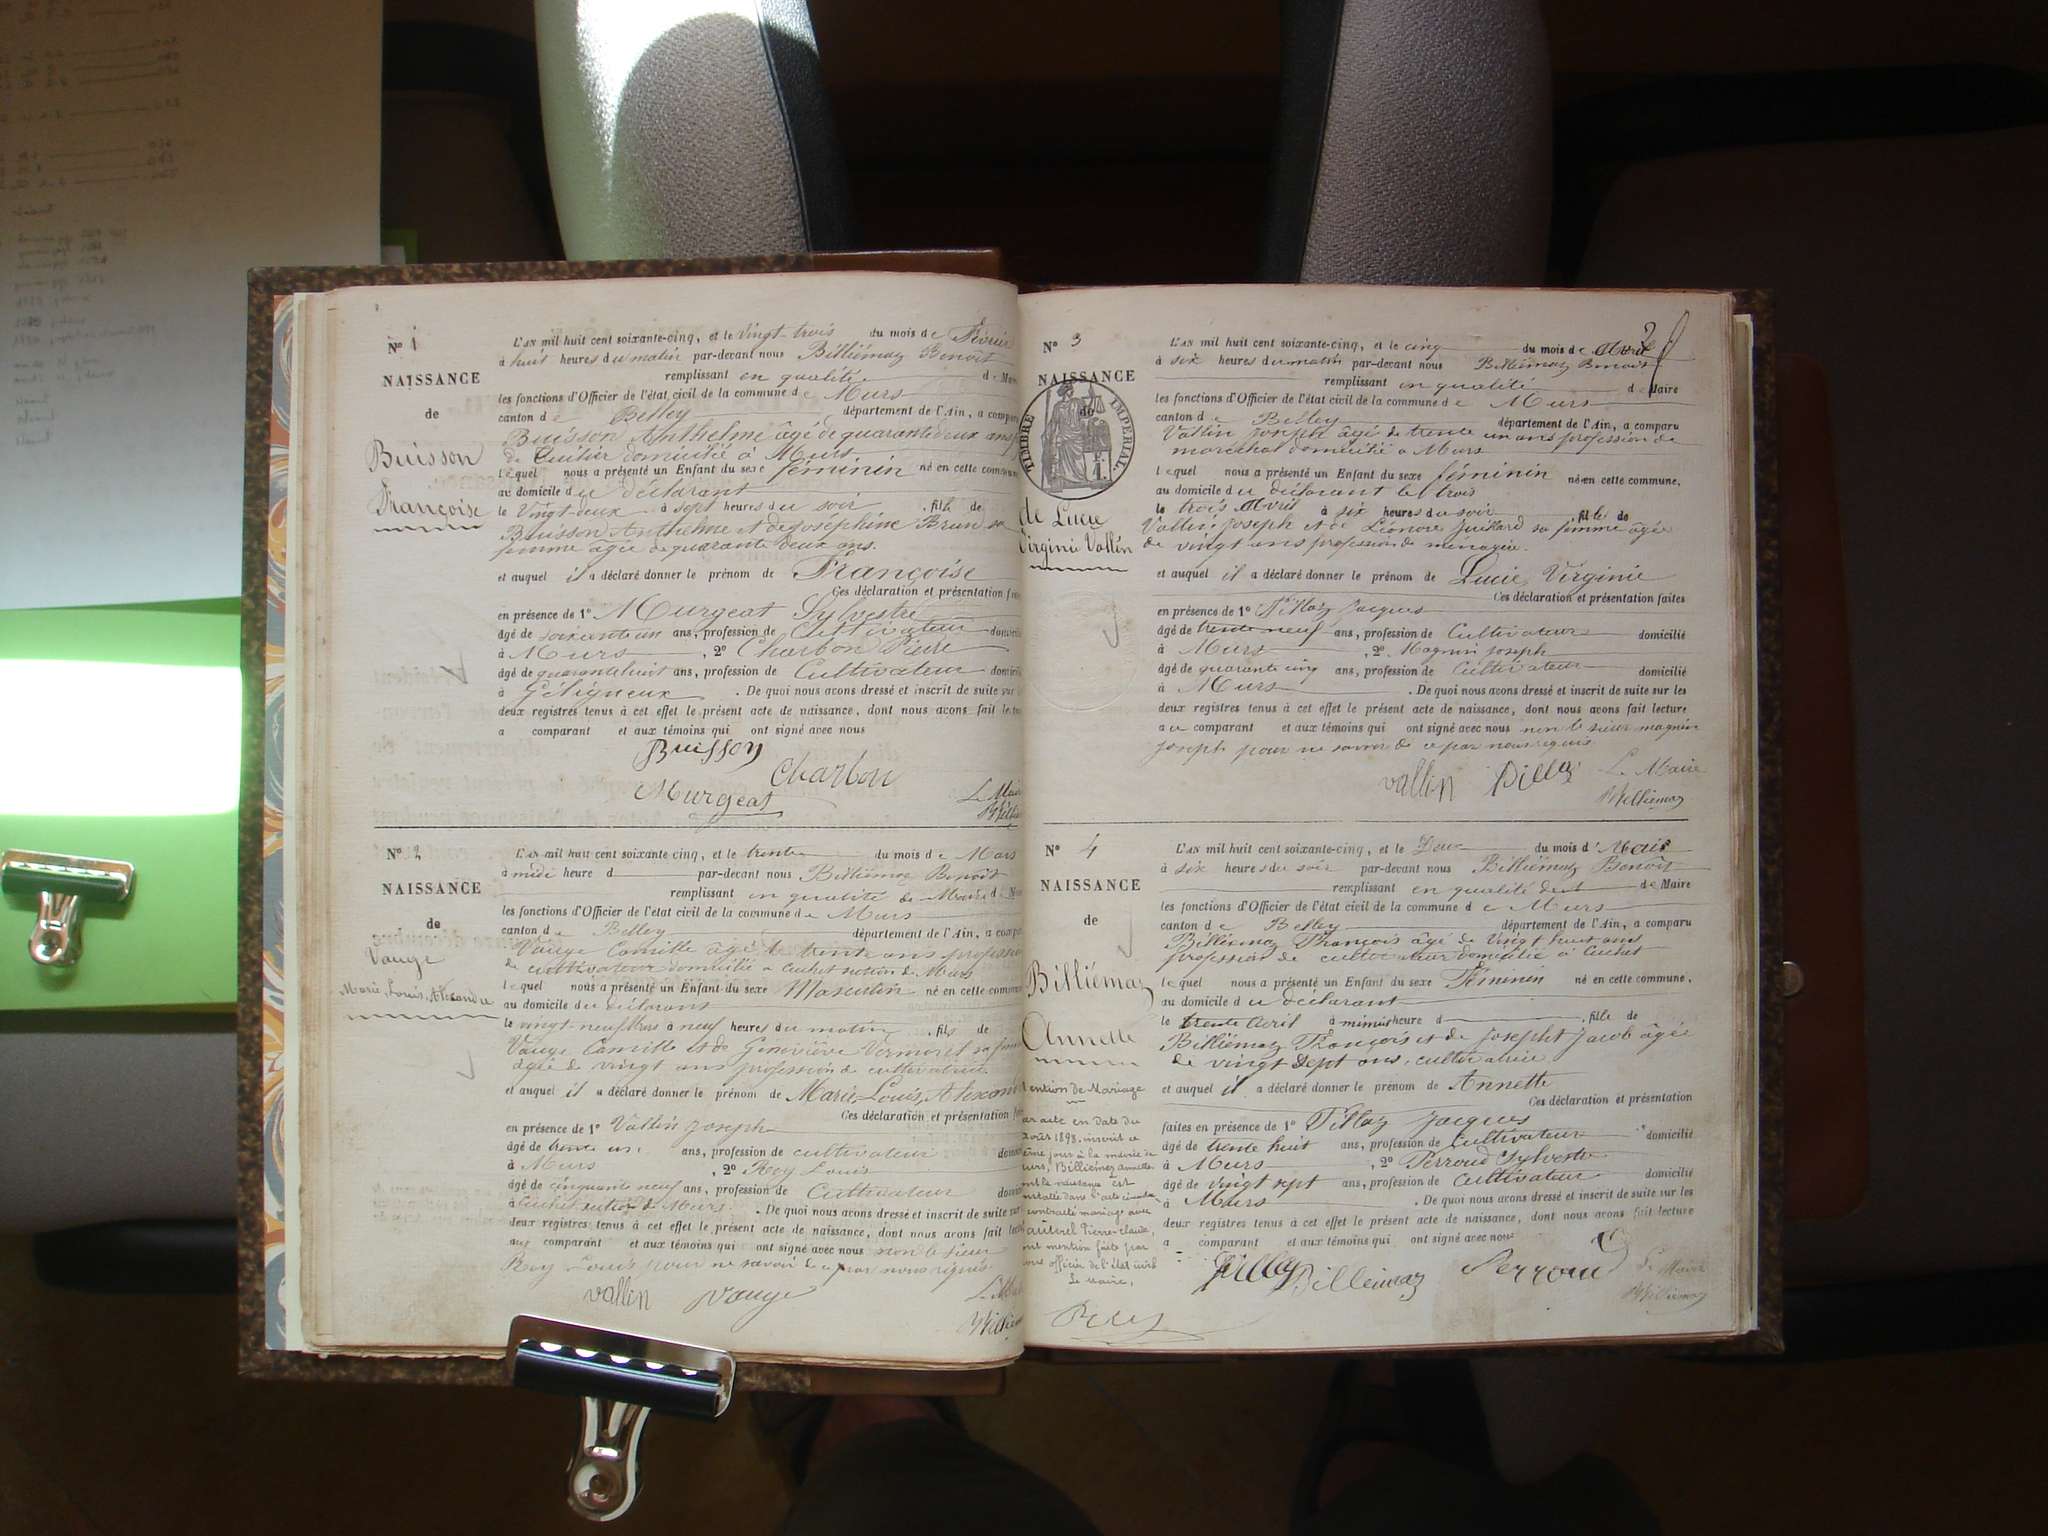 Nº 1
NAISSANCE
de
Buisson
Françoise
L'AN mil huit cent soixante-cinq, et le Vingt trois du mois de
à huit heures du matin par-devant nous Billiémaz Benoit
remplissant en qualité de Maire
les fonctions d'Officier de l'état civil de la commune de Murs
canton de Belley département de l'Ain, a comparu
Buisson Anthelme âgé de quarante deux ans
domicilié à Murs
lequel nous a présenté un Enfant du sexe féminin né en cette commune
au domicile du déclarant
le Vingt deux à sept heures du soir, fille de
Buisson Anthelme et de Joséphine Brun sa
femme âgée de quarante deux ans.
et auquel il a déclaré donner le prénom de Françoise
Ces déclaration et présentation faites
en présence de 1º Murgeat Sylvestre
âgé de soixante un ans, profession de Cultivateur domicilié
à Murs, 2º Charbon Pierre
âgé de quarante huit ans, profession de Cultivateur domicilié
à Gélignieux. De quoi nous avons dressé et inscrit de suite sur
deux registres tenus à cet effet le présent acte de naissance, dont nous avons fait lecture
a comparant et aux témoins qui ont signé avec nous
Buisson
Charbon
Murgeat
Le Maire
Billiémaz
Nº 2
NAISSANCE
de
Vauge
Marie, Louis, Alexandre
L'AN mil huit cent soixante cinq, et le trente du mois de Mars
à midi heure d par-devant nous Billiémaz Benoit
remplissant en qualité de Maire d
les fonctions d'Officier de l'état civil de la commune de Murs
canton de Belley département de l'Ain, a comparu
Vauge Camille âgé de trente ans profession
de cultivateur domicilié a Cuchet section de Murs
lequel nous a présenté un Enfant du sexe Masculin né en cette commune
au domicile du déclarant
le vingt-neuf Mars à neuf heures du matin, fils de
Vauge Camille et de Geneviève Vermorel sa femme
âgée de vingt ans profession de cultivatrice
et auquel il a déclaré donner le prénom de Marie, Louis, Alexandre
Ces déclaration et présentation
en présence de 1º Vallin Joseph
âgé de trente un ans, profession de cultivateur
à Murs, 2º Roy Louis
âgé de cinquante neuf ans, profession de Cultivateur
à Cuchet section de Murs. De quoi nous avons dressé et inscrit de suite sur
deux registres tenus à cet effet le présent acte de naissance, dont nous avons fait lecture
au comparant et aux témoins qui ont signé avec nous non le sieur
Roy Louis pour ne savoir de ce par nous requis
vallin Vauge
Le Maire
Billiémaz
2
Nº 3
NAISSANCE
de
TIMBRE IMPERIAL
de Lucie
Virginie Vallin
L'AN mil huit cent soixante-cinq, et le cinq du mois de Avril
à six heures du matin par-devant nous Billiémaz Benoit
remplissant en qualité de Maire
les fonctions d'Officier de l'état civil de la commune de Murs
canton de Belley département de l'Ain, a comparu
Vallin Joseph âgé de trente un ans profession de
maréchal domicilié a Murs
lequel nous a présenté un Enfant du sexe féminin né en cette commune,
au domicile du déclarant le trois
le trois Avril à six heures du soir fille de
Vallin Joseph et de Léonore Juillard sa femme âgée
de vingt ans profession de ménagère.
et auquel il a déclaré donner le prénom de Lucie, Virginie
Ces déclaration et présentation faites
en présence de 1º Pillaz Jacques
âgé de trente neuf ans, profession de Cultivateur domicilié
à Murs, 2º Magnin Joseph
âgé de quarante cinq ans, profession de Cultivateur domicilié
à Murs. De quoi nous avons dressé et inscrit de suite sur les
deux registres tenus à cet effet le présent acte de naissance, dont nous avons fait lecture
au comparant et aux témoins qui ont signé avec nous non le sieur magnin
Joseph pour ne savoir de ce par nous requis
vallin Pillaz Le Maire
Billiemaz
Nº 4
NAISSANCE
de
Billiémaz
Annette
mention de Mariage
par acte en date du
août 1898, inscrit ce
même jour à la mairie de
Murs, Billiémaz annette
dont la naissance est
constatée dans l'acte
contracté mariage avec
Pierre-claude,
dont mention faite par
nous officier de l'état civil
Le Maire,
L'AN mil huit cent soixante-cinq, et le Deux du mois d Mai
à six heures du soir par-devant nous Billiémaz Benoit
remplissant en qualité de Maire
les fonctions d'Officier de l'état civil de la commune de Murs
canton de Belley département de l'Ain, a comparu
Billiémaz François âgé de Vingt huit ans
profession de cultivateur domicilié à Cuchet
lequel nous a présenté un Enfant du sexe Féminin né en cette commune,
au domicile du déclarant
le trente Avril à minuit heure d, fille de
Billiémaz François et de Josepht Jacob âgée
de vingt sept ans, cultivatrice
et auquel il a déclaré donner le prénom de Annette
Ces déclaration et présentation
faites en présence de 1º Pillaz Jacques
âgé de trente huit ans, profession de Cultivateur domicilié
à Murs, 2º Perroud Sylvestre
âgé de vingt sept ans, profession de Cultivateur domicilié
à Murs. De quoi nous avons dressé et inscrit de suite sur les
deux registres tenus à cet effet le présent acte de naissance, dont nous avons fait lecture
a comparant et aux témoins qui ont signé avec nous
Pillaz Billiemaz Perroud Le Maire
Billiemaz